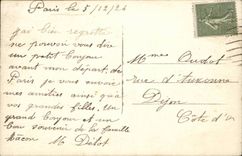 Paris le 5/12/24
j'ai bien regretté
ne pouvoir vous dire
un petit bonjour
avant mon départ, de
Paris je vous envoie
mes amitiés ainsi qu'à
vos grandes filles. Un
grand bonjour et un
bon souvenir de la famille
M
Mme Oudot
rue d'Auxonne
Dijon
Côte d'Or